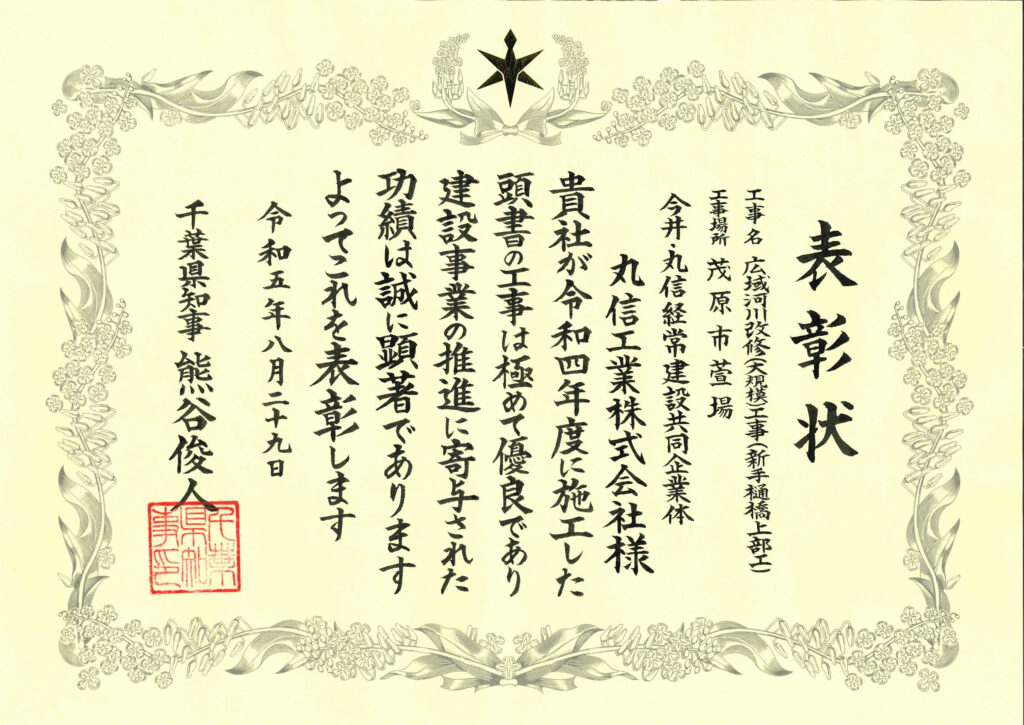 表彰状
工事名 広域河川改修(大規模)工事(新手樋橋上部工)
工事場所 茂原市萱場
今井・丸信経常建設共同企業体
丸信工業株式会社様
貴社が令和四年度に施工した
頭書の工事は極めて優良であり
建設事業の推進に寄与された
功績は誠に顕著であります
よってこれを表彰します
令和五年八月二十九日
千葉県知事 熊谷俊人
千葉
県知
事印